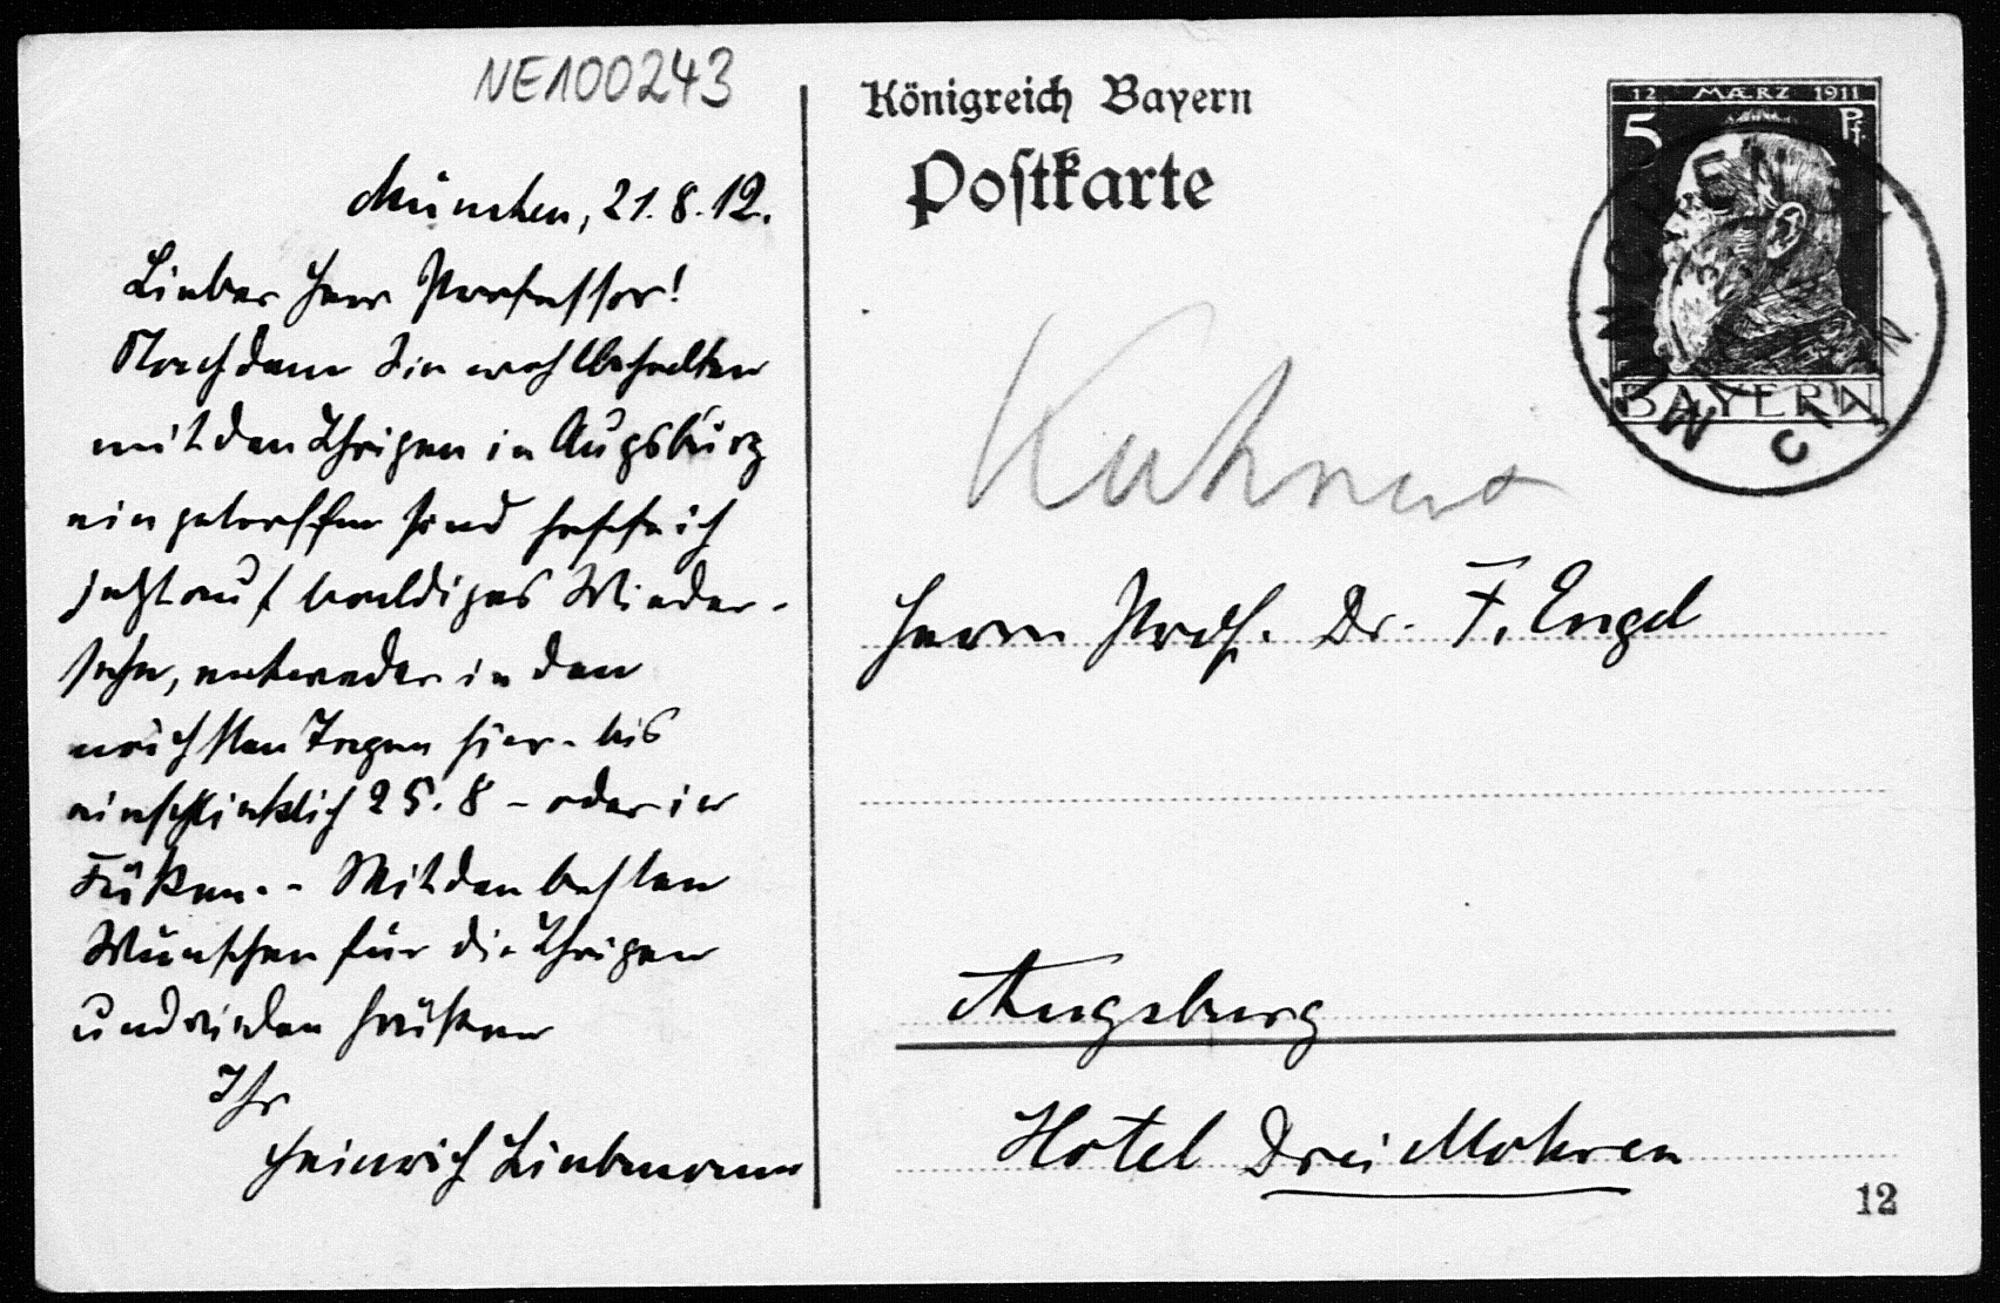 NE100243
München, 21. 8. 12.
Lieber Herr Professor!
Nachdem Sie wohlbehalten
mit den Ihrigen in Augsburg
eingetroffen sind hoffe ich
jetzt auf baldiges Wieder-
sehn, entweder in den
nächsten Tagen hier - bis
einschließlich 25. 8 - oder in
Füßen. - Mit den besten
Wünschen für die Ihrigen
und vielen Grüßen
Ihr
Heinrich Liebmann
Königreich Bayern
Postkarte
12 MÆRZ 1911
5 Pf.
BAYERN
MÜNCHEN
Herrn Prof. Dr. F. Engel
Augsburg
Hotel Drei Mohren
12